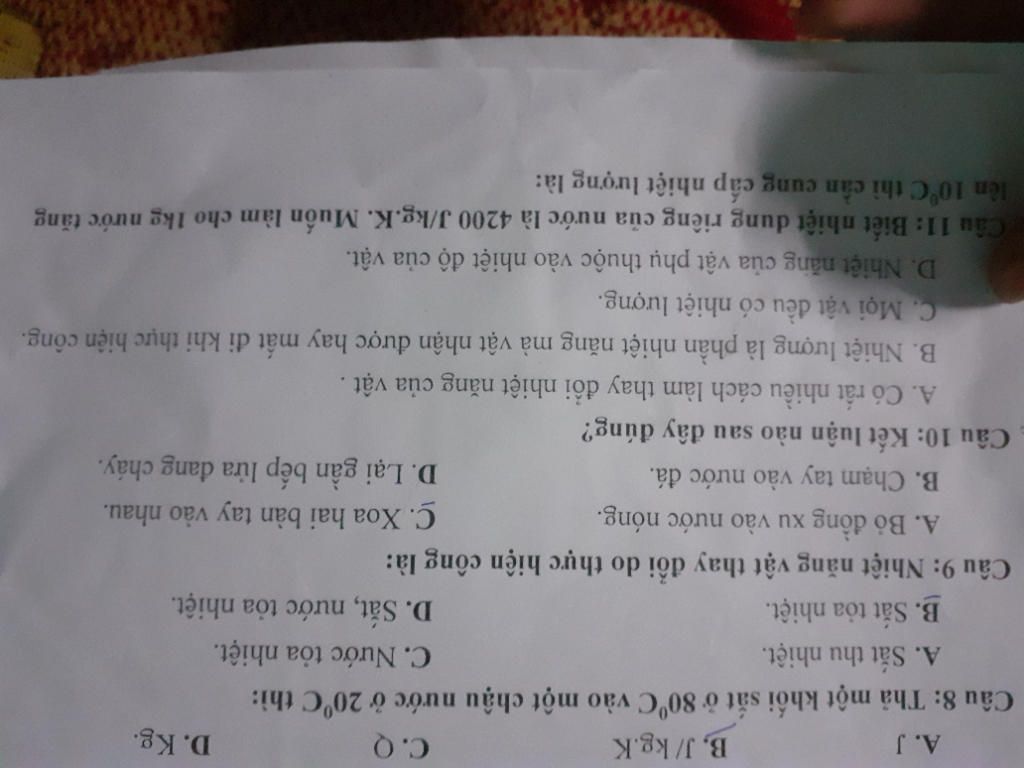 A. J B. J/kg.K C. Q D. Kg.
Câu 8: Thả một khối sắt ở 80⁰C vào một chậu nước ở 20⁰C thì:
A. Sắt thu nhiệt. C. Nước tỏa nhiệt.
B. Sắt tỏa nhiệt. D. Sắt, nước tỏa nhiệt.
Câu 9: Nhiệt năng vật thay đổi do thực hiện công là:
A. Bỏ đồng xu vào nước nóng. C. Xoa hai bàn tay vào nhau.
B. Chạm tay vào nước đá. D. Lại gần bếp lửa đang cháy.
Câu 10: Kết luận nào sau đây đúng?
A. Có rất nhiều cách làm thay đổi nhiệt năng của vật .
B. Nhiệt lượng là phần nhiệt năng mà vật nhận được hay mất đi khi thực hiện công.
C. Mọi vật đều có nhiệt lượng.
D. Nhiệt năng của vật phụ thuộc vào nhiệt độ của vật.
Câu 11: Biết nhiệt dung riêng của nước là 4200 J/kg.K. Muốn làm cho 1kg nước tăng
lên 10⁰C thì cần cung cấp nhiệt lượng là: